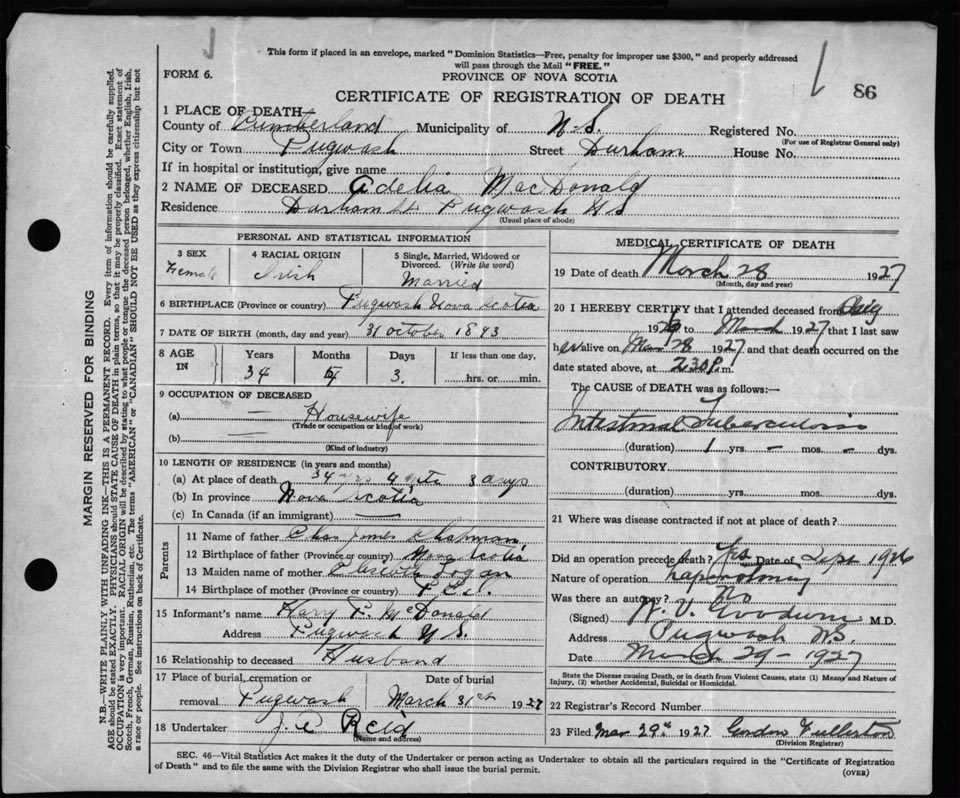 This form if placed in an envelope, marked "Dominion Statistics—Free, penalty for improper use $300," and properly addressed
will pass through the Mail "FREE."
FORM 6.
PROVINCE OF NOVA SCOTIA
86
CERTIFICATE OF REGISTRATION OF DEATH
1 PLACE OF DEATH
County of Cumberland Municipality of N.S. Registered No.
(For use of Registrar General only)
City or Town Pugwash Street Durham House No.
If in hospital or institution, give name
2 NAME OF DECEASED Adelia MacDonald
Residence Durham St Pugwash N S
(Usual place of abode)
PERSONAL AND STATISTICAL INFORMATION
3 SEX 4 RACIAL ORIGIN 5 Single, Married, Widowed or Divorced. (Write the word)
Female Irish Married
6 BIRTHPLACE (Province or country) Pugwash Nova Scotia
7 DATE OF BIRTH (month, day and year) 31 October 1893
8 AGE IN Years Months Days If less than one day,
34 4 3. hrs. or min.
9 OCCUPATION OF DECEASED
(a) — Housewife
(Trade or occupation or kind of work)
(b) —
(Kind of industry)
10 LENGTH OF RESIDENCE (in years and months)
(a) At place of death 34 yrs 4 3 days
(b) In province Nova Scotia
(c) In Canada (if an immigrant) —
Parents
11 Name of father Chas James
12 Birthplace of father (Province or country) Nova Scotia
13 Maiden name of mother Logan
14 Birthplace of mother (Province or country) P.E.I.
15 Informant's name Harry F. McDonald
Address Pugwash N S.
16 Relationship to deceased Husband
17 Place of burial, cremation or removal Pugwash Date of burial March 31st 1927
18 Undertaker Reid
(Name and address)
MEDICAL CERTIFICATE OF DEATH
19 Date of death March 28 1927
(Month, day and year)
20 I HEREBY CERTIFY that I attended deceased from Aug
192 to March 1927 that I last saw
her alive on Mar 28 1927 and that death occurred on the
date stated above, at 2.30 P.m.
The CAUSE of DEATH was as follows:—
Intestinal Tuberculosis
(duration) 1 yrs. - mos. - dys.
CONTRIBUTORY
(duration) yrs. mos. dys.
21 Where was disease contracted if not at place of death?
Did an operation precede death? Yes Date of Sept 1926
Nature of operation Laparotomy
Was there an autopsy? No
(Signed) Goodwin M.D.
Address Pugwash NS.
Date March 29 - 1927
State the Disease causing Death, or in death from Violent Causes, state (1) Means and Nature of
Injury, (2) whether Accidental, Suicidal or Homicidal.
22 Registrar's Record Number
23 Filed Mar 29th 1927 Gordon Fullerton
(Division Registrar)
SEC. 46—Vital Statistics Act makes it the duty of the Undertaker or person acting as Undertaker to obtain all the particulars required in the "Certificate of Registration
of Death" and to file the same with the Division Registrar who shall issue the burial permit.
(OVER)
MARGIN RESERVED FOR BINDING
N.B.—WRITE PLAINLY WITH UNFADING INK—THIS IS A PERMANENT RECORD. Every item of information should be carefully supplied.
AGE should be stated EXACTLY. PHYSICIANS should STATE CAUSE OF DEATH in plain terms, so that it may be properly classified. Exact statement of
OCCUPATION is very important. RACIAL ORIGIN will be described by stating to what people or tongue the deceased person belonged, whether English, Irish,
Scotch, French, German, Russian, Ruthenian, etc. The terms "AMERICAN" or "CANADIAN" SHOULD NOT BE USED as they express citizenship but not
a race or people. See instructions on back of Certificate.